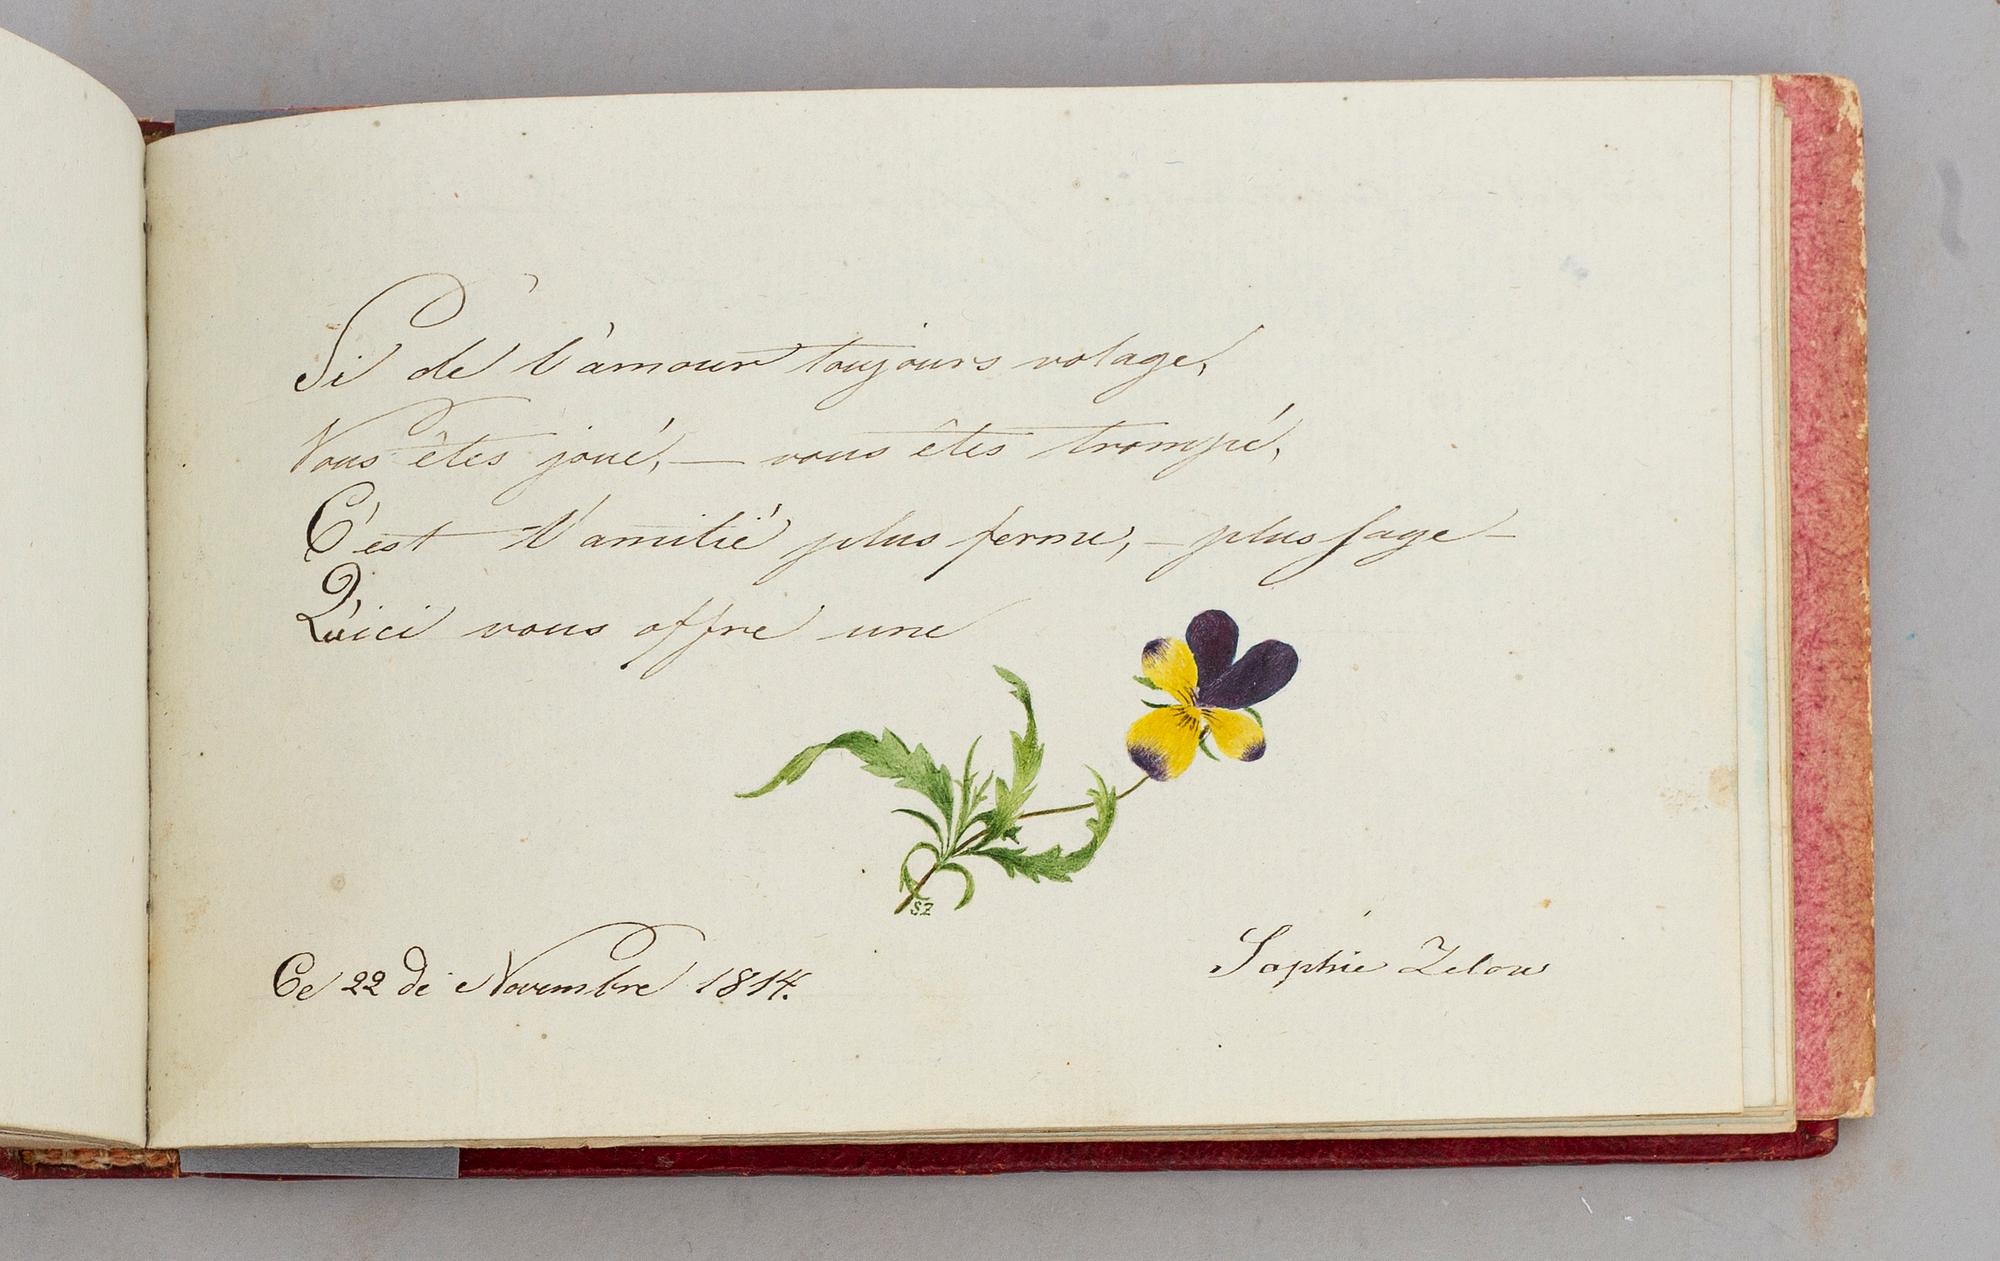 Si de l'amour toujours volage,
Vous êtes joué, — vous êtes trompé,
C'est l'amitié plus ferme, — plus sage —
Qu'ici vous offre une
SZ
Ce 22 de Novembre 1814.
Sophie Zelow